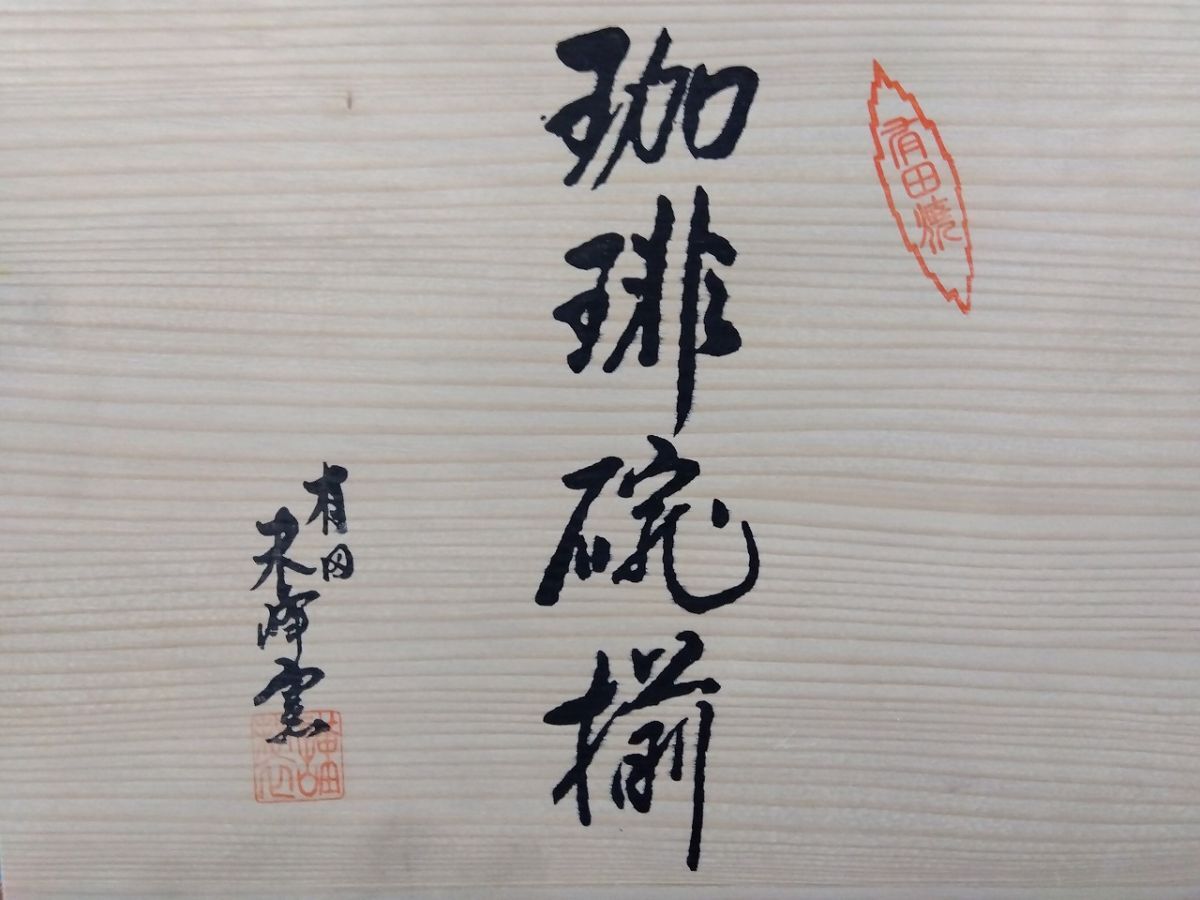 有田焼
珈琲碗揃
有田
東峰窯